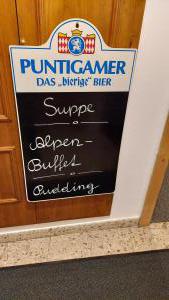 PUNTIGAMER
DAS „bierige“ BIER
Suppe
Alpen-
Buffet
Pudding